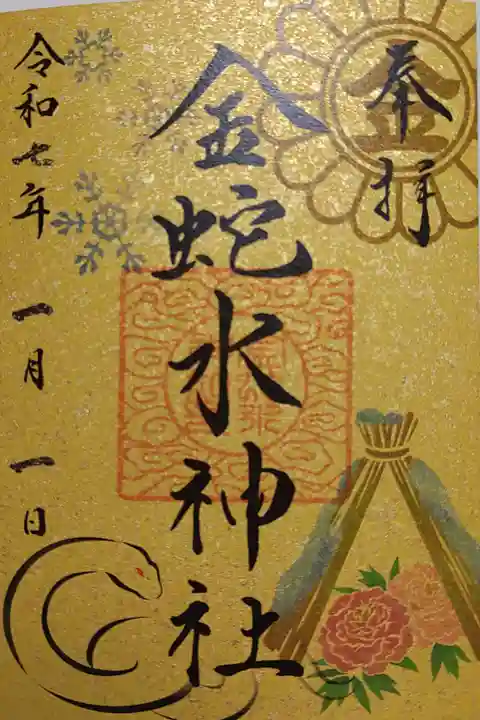 奉拝
金
金蛇水神社
令和七年 一月一日